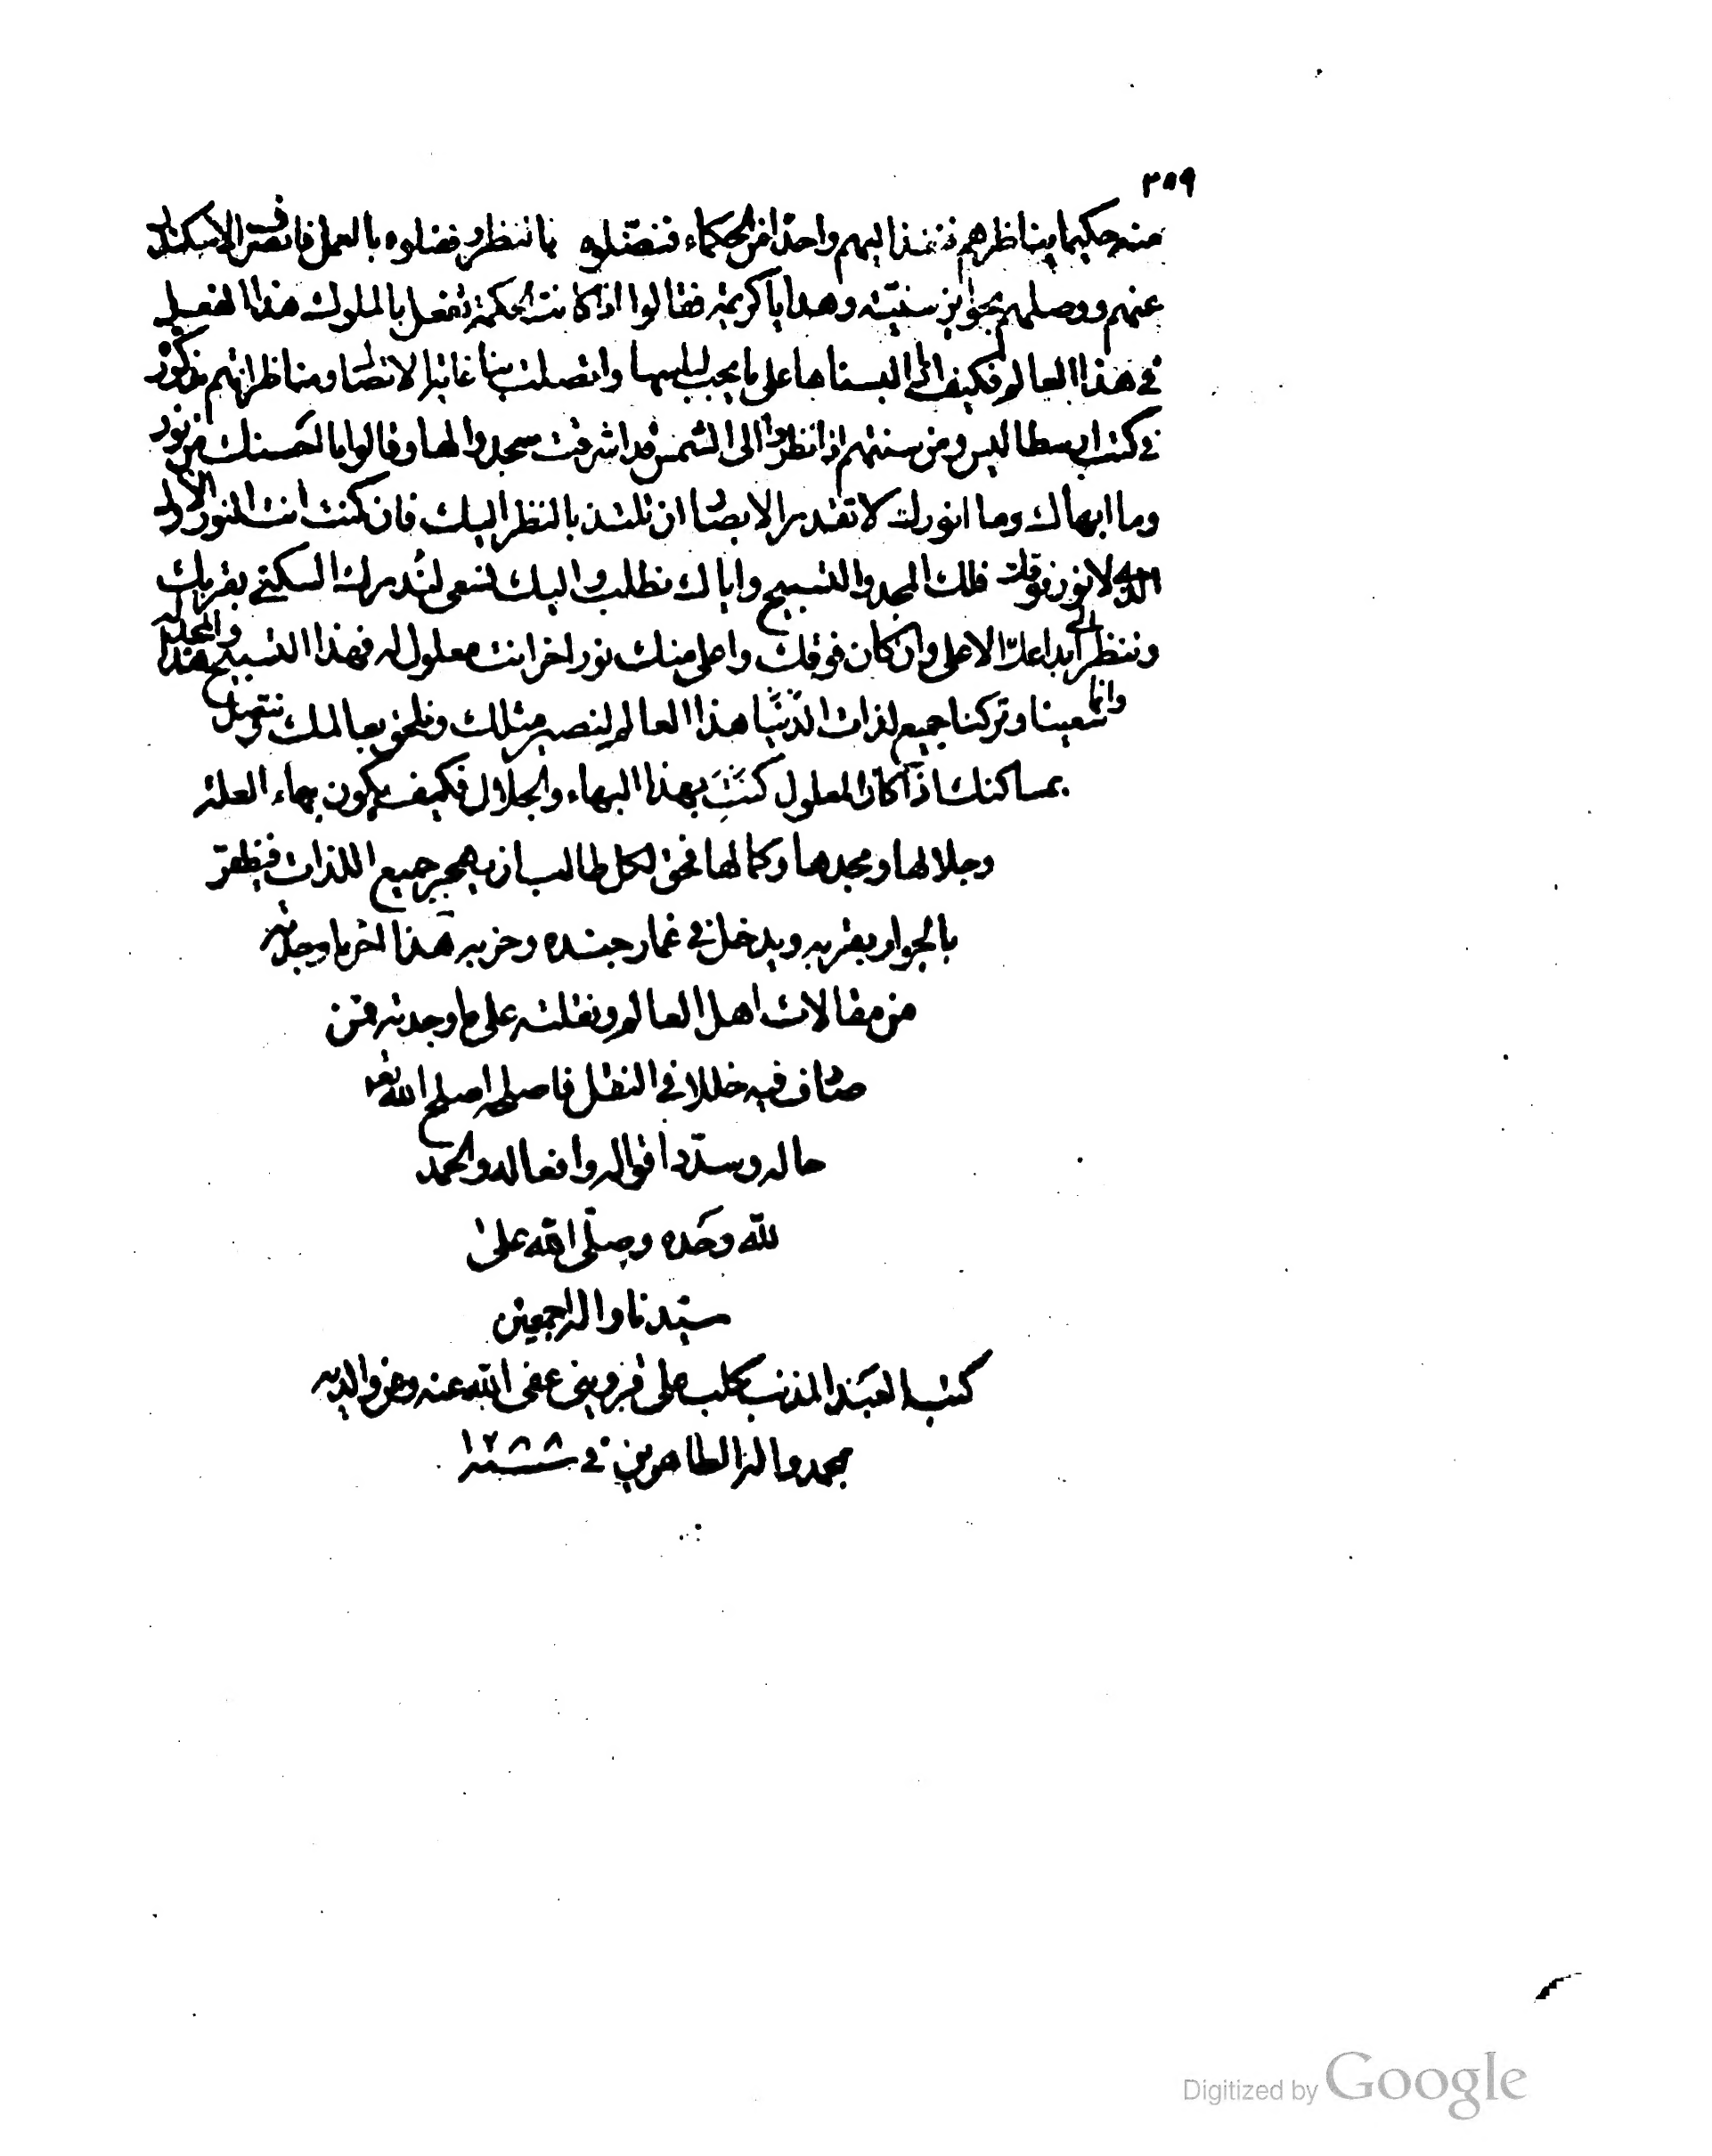 ٣٥٩
منه حكيما يناظرهم فنفذ اليهم واحدا من الحكماء فنضلوه بالنظر وفضلوه بالعمل فانصرف الاسكندر
عنهم ووصلهم بجوايز سنيّة وهدايا كريمة فقالوا اذا كانت الحكمة تفعل بالملوك هذا الفعل
في هذا العالم فكيف اذا البسناها على ما يجب لباسها واتصلت بنا غاية الاتصال ومناظراتهم مذكورة
في كتب ارسطاليس ومن سنتهم اذا نظروا الى الشمس قد اشرقت سجدوا لها وقالوا ما احسنك من نور
وما ابهاك وما انورك لا تقدر الابصار ان تلتذ بالنظر اليك فان كنت انت النور الاول
الذي لا نور فوقك فلك المجد والتسبيح واياك نطلب واليك نسعى لندرك السكنى بقربك
وننظر الى ابداعك الاعلى وان كان فوقك واعلى منك نور اخر انت معلول له فهذا التسبيح وهذا المجد له
وانما سعينا وتركنا جميع لذات الدنيا هذا العالم لنصير مثلك ونلحق بعالمك ونتصل
بمساكنك اذا كان المعلول كنت بهذا البهاء والجلال فكيف يكون بهاء العلة
وجلالها ومجدها وكمالها فحق لكل طالب ان يهجر جميع اللذات فيظفر
بالجوار بقربه ويدخل في غمار جنده وحزبه هذا اخر ما وجدته
من مقالات اهل العالم ونقلته على ما وجدته فمن
صادف فيه خللا في النقل فاصلحه اصلح الله تعا
حاله وسدد اقواله وافعاله والحمد
لله وحده وصلّى الله على
سيّدنا واله اجمعين
كتبه العبد المذنب كلب على قزوينى عفى الله عنه وعن والديه
بمحمد واله الطاهرين في سنة ١٢٨٨
Digitized by Google